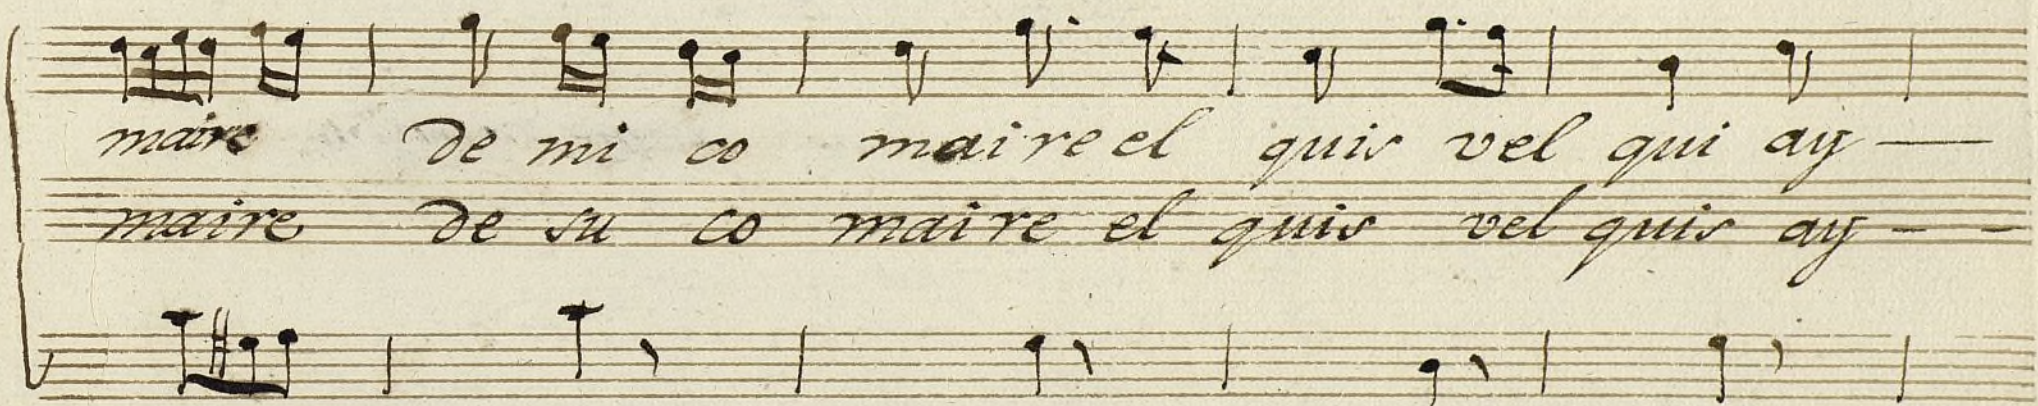 maire de mi co maire el quis vel qui ay —
maire de su co maire el quis vel quis ay - -